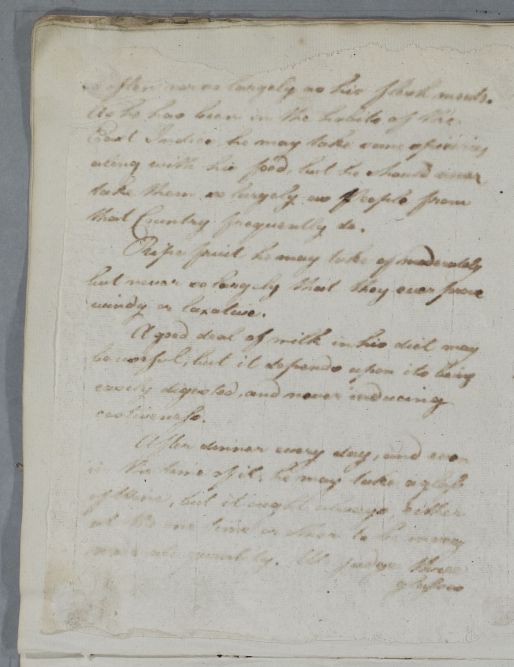 often nor so largely as his flesh meats.
As he has been in the habits of the
East Indies, he may take some spiceries
along with his food, but he should never
take them so largely as People from
that Country frequently do.
Ripe fruit he may take of moderately
but never so largely that they ever prove
windy or laxative.
A good deal of milk in his diet may
be useful, but it depends upon its being
easily digested, and never inducing
costiveness.
After dinner every day, and even
in the time of it, he may take a glass
of Wine, but it ought always either
at the one time or other to be in very
moderate quantity. We judge three
glasses